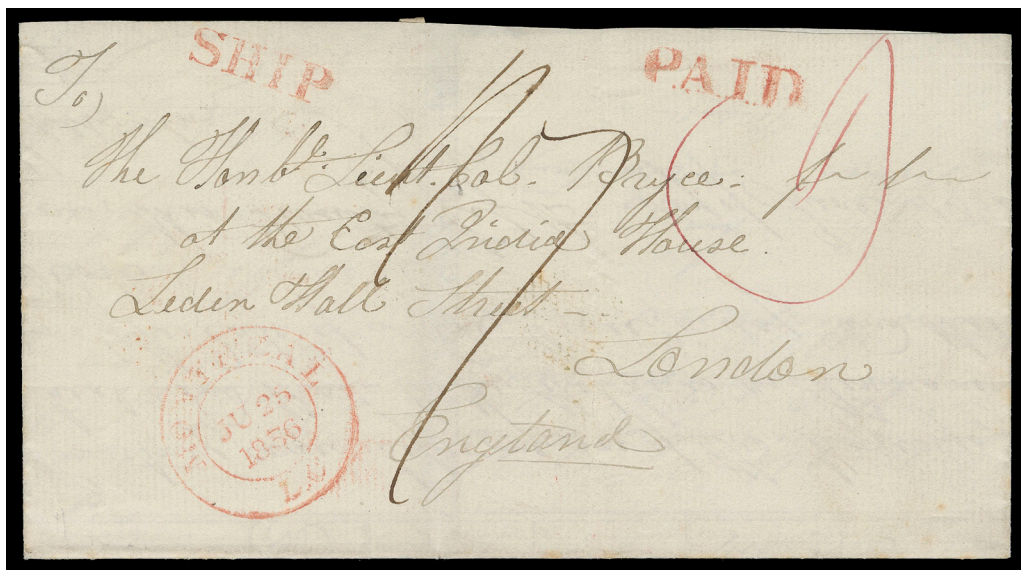 SHIP
PAID
To
The Honble. Lieut. Col. Bryce.
at the East India House.
Leden Hall Street
London
England
MONTREAL
JU 25
1836
L.C
1/7